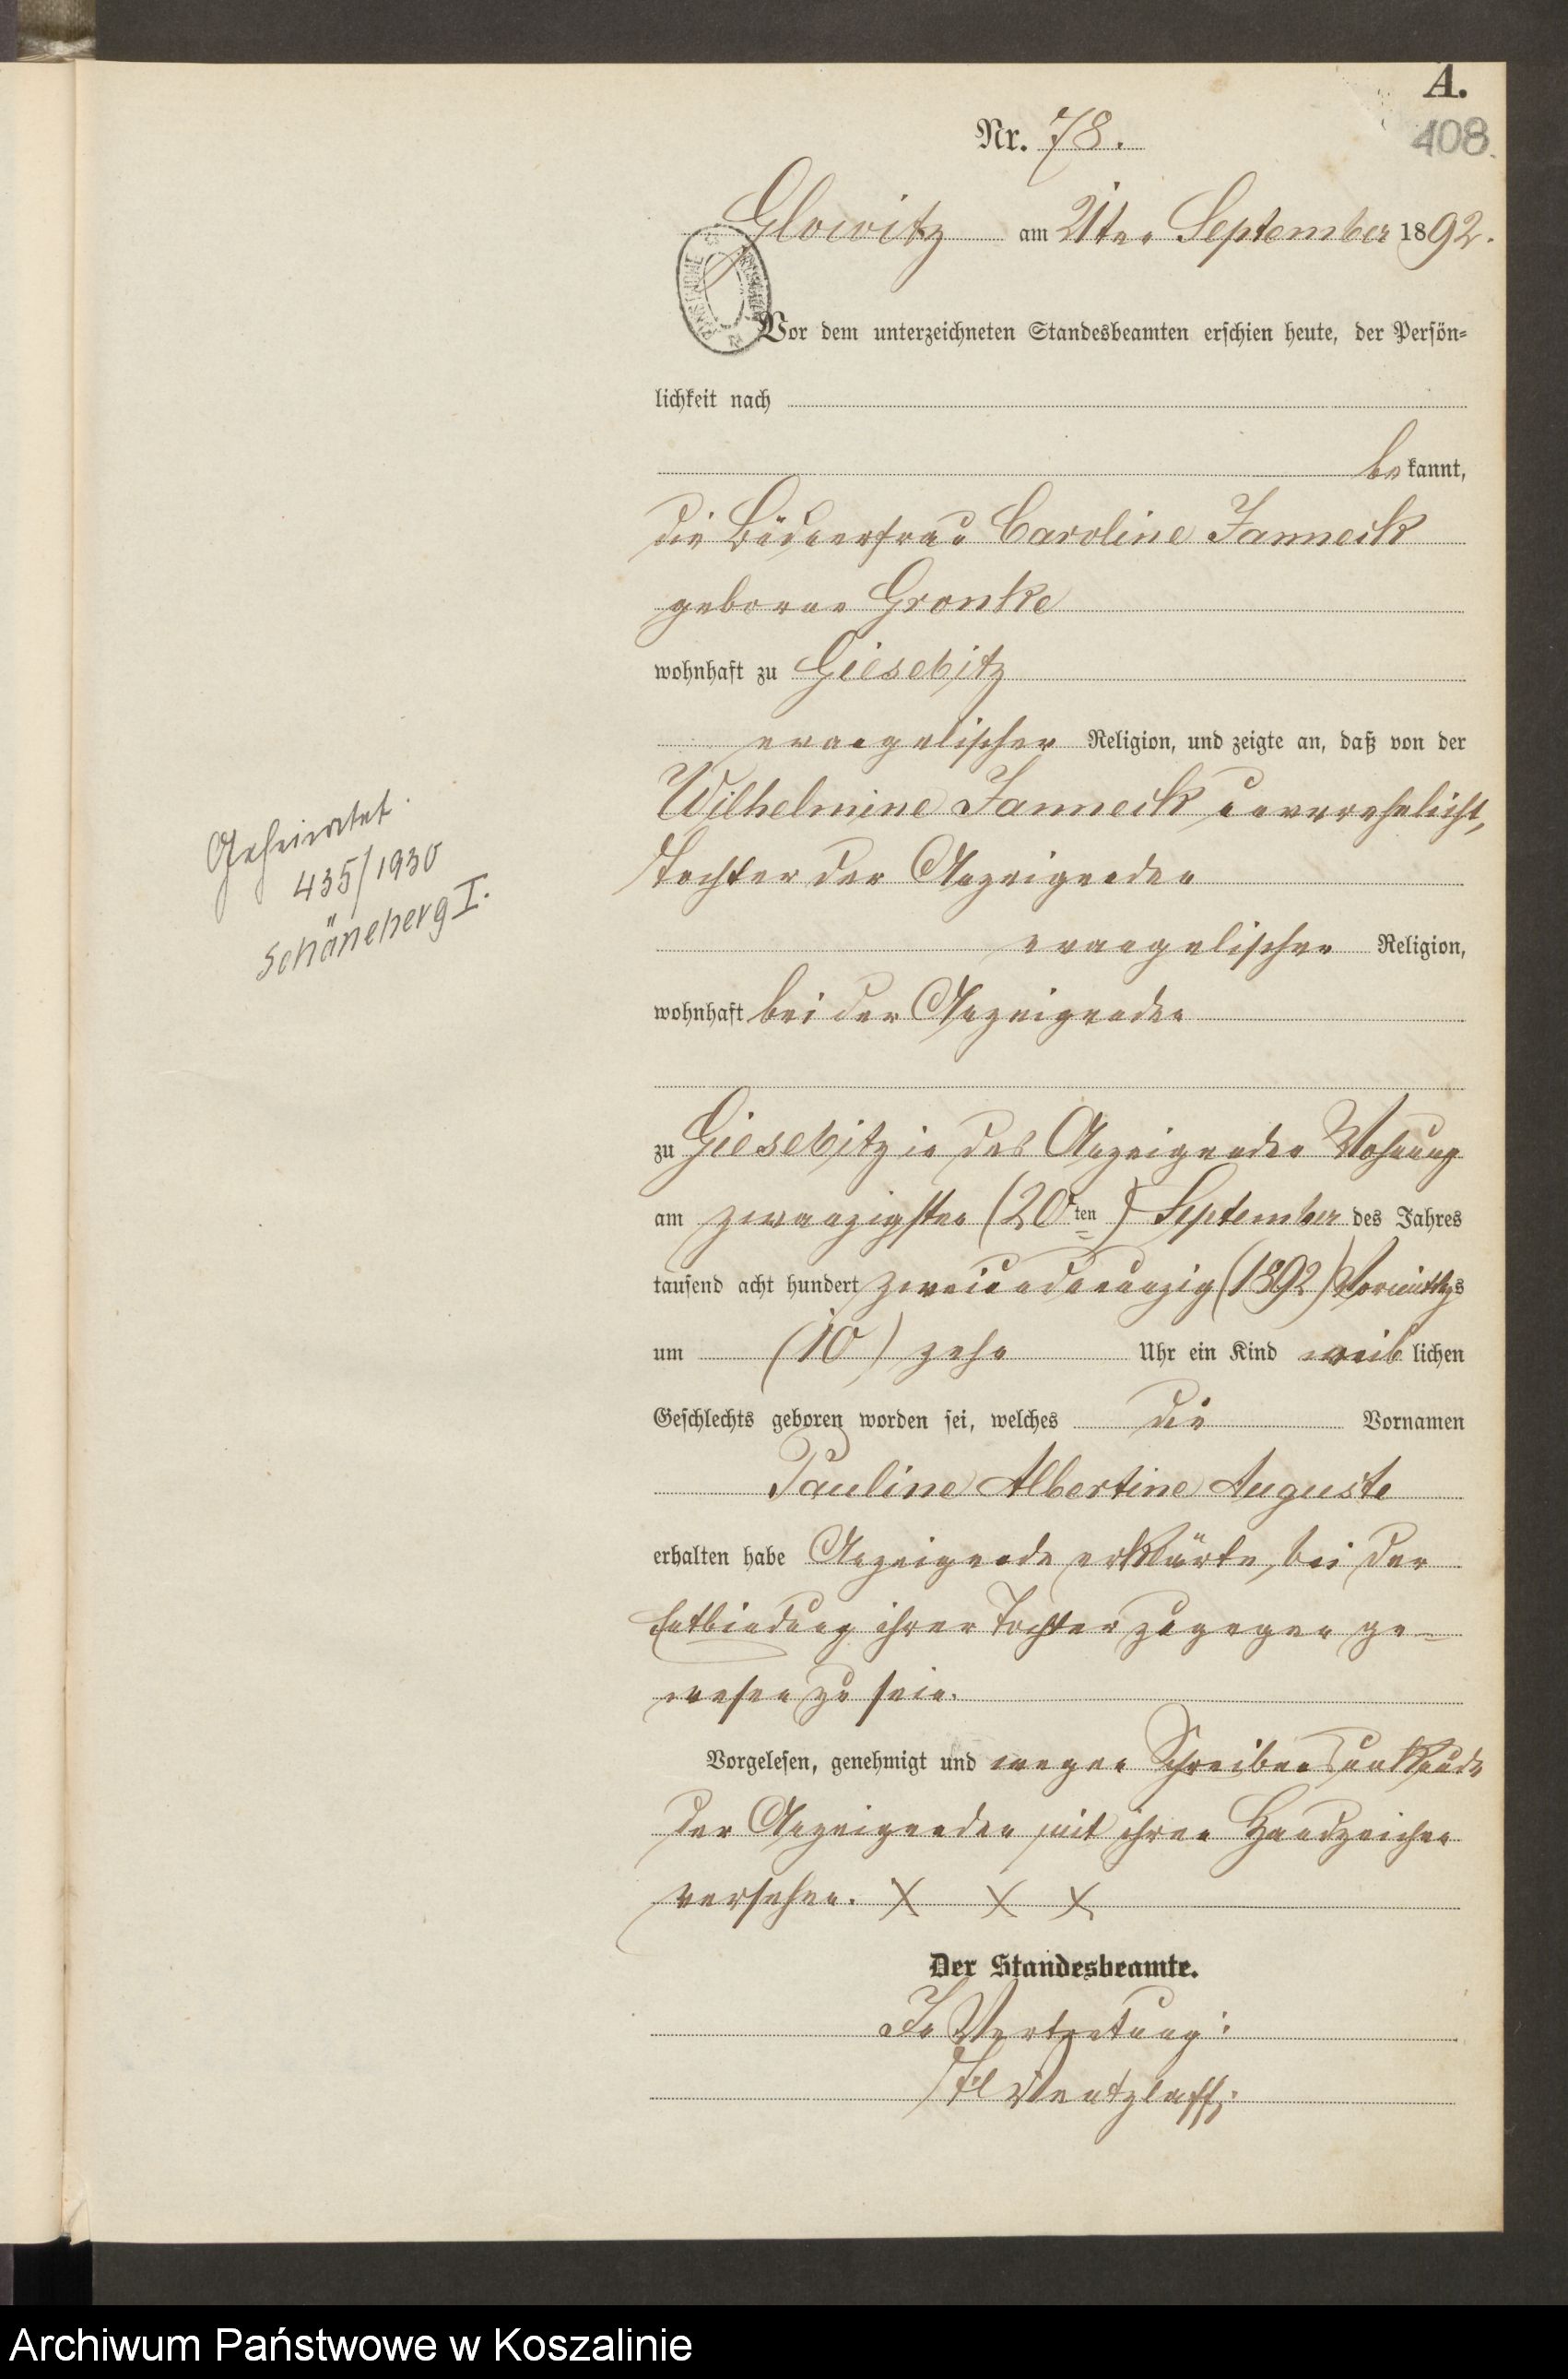 A.
408.
Nr. 78.
Glowitz am 21ten September 1892.
Vor dem unterzeichneten Standesbeamten erschien heute, der Persön-
lichkeit nach
bekannt,
die Büdnerfrau Caroline Janneck
geborne Gronke
wohnhaft zu Giesebitz
evangelischer Religion, und zeigte an, daß von der
Wilhelmine Janneck unverehelicht,
Tochter der Anzeigenden
evangelischer Religion,
wohnhaft bei der Anzeigenden
Geheiratet
435/1930
Schöneberg I.
zu Giesebitz in der Anzeigenden Wohnung
am zwanzigsten (20ten) September des Jahres
tausend acht hundert zweiundneunzig (1892) Vormittgs
um (10) zehn Uhr ein Kind weiblichen
Geschlechts geboren worden sei, welches die Vornamen
Pauline Albertine Auguste
erhalten habe Anzeigende erklärte, bei der
Entbindung ihrer Tochter zugegen ge-
wesen zu sein.
Vorgelesen, genehmigt und wegen Schreibensunkunde
der Anzeigenden mit ihren Handzeichen
versehen. X X X
Der Standesbeamte.
In Vertretung:
Wentzlaff.
Archiwum Państwowe w Koszalinie